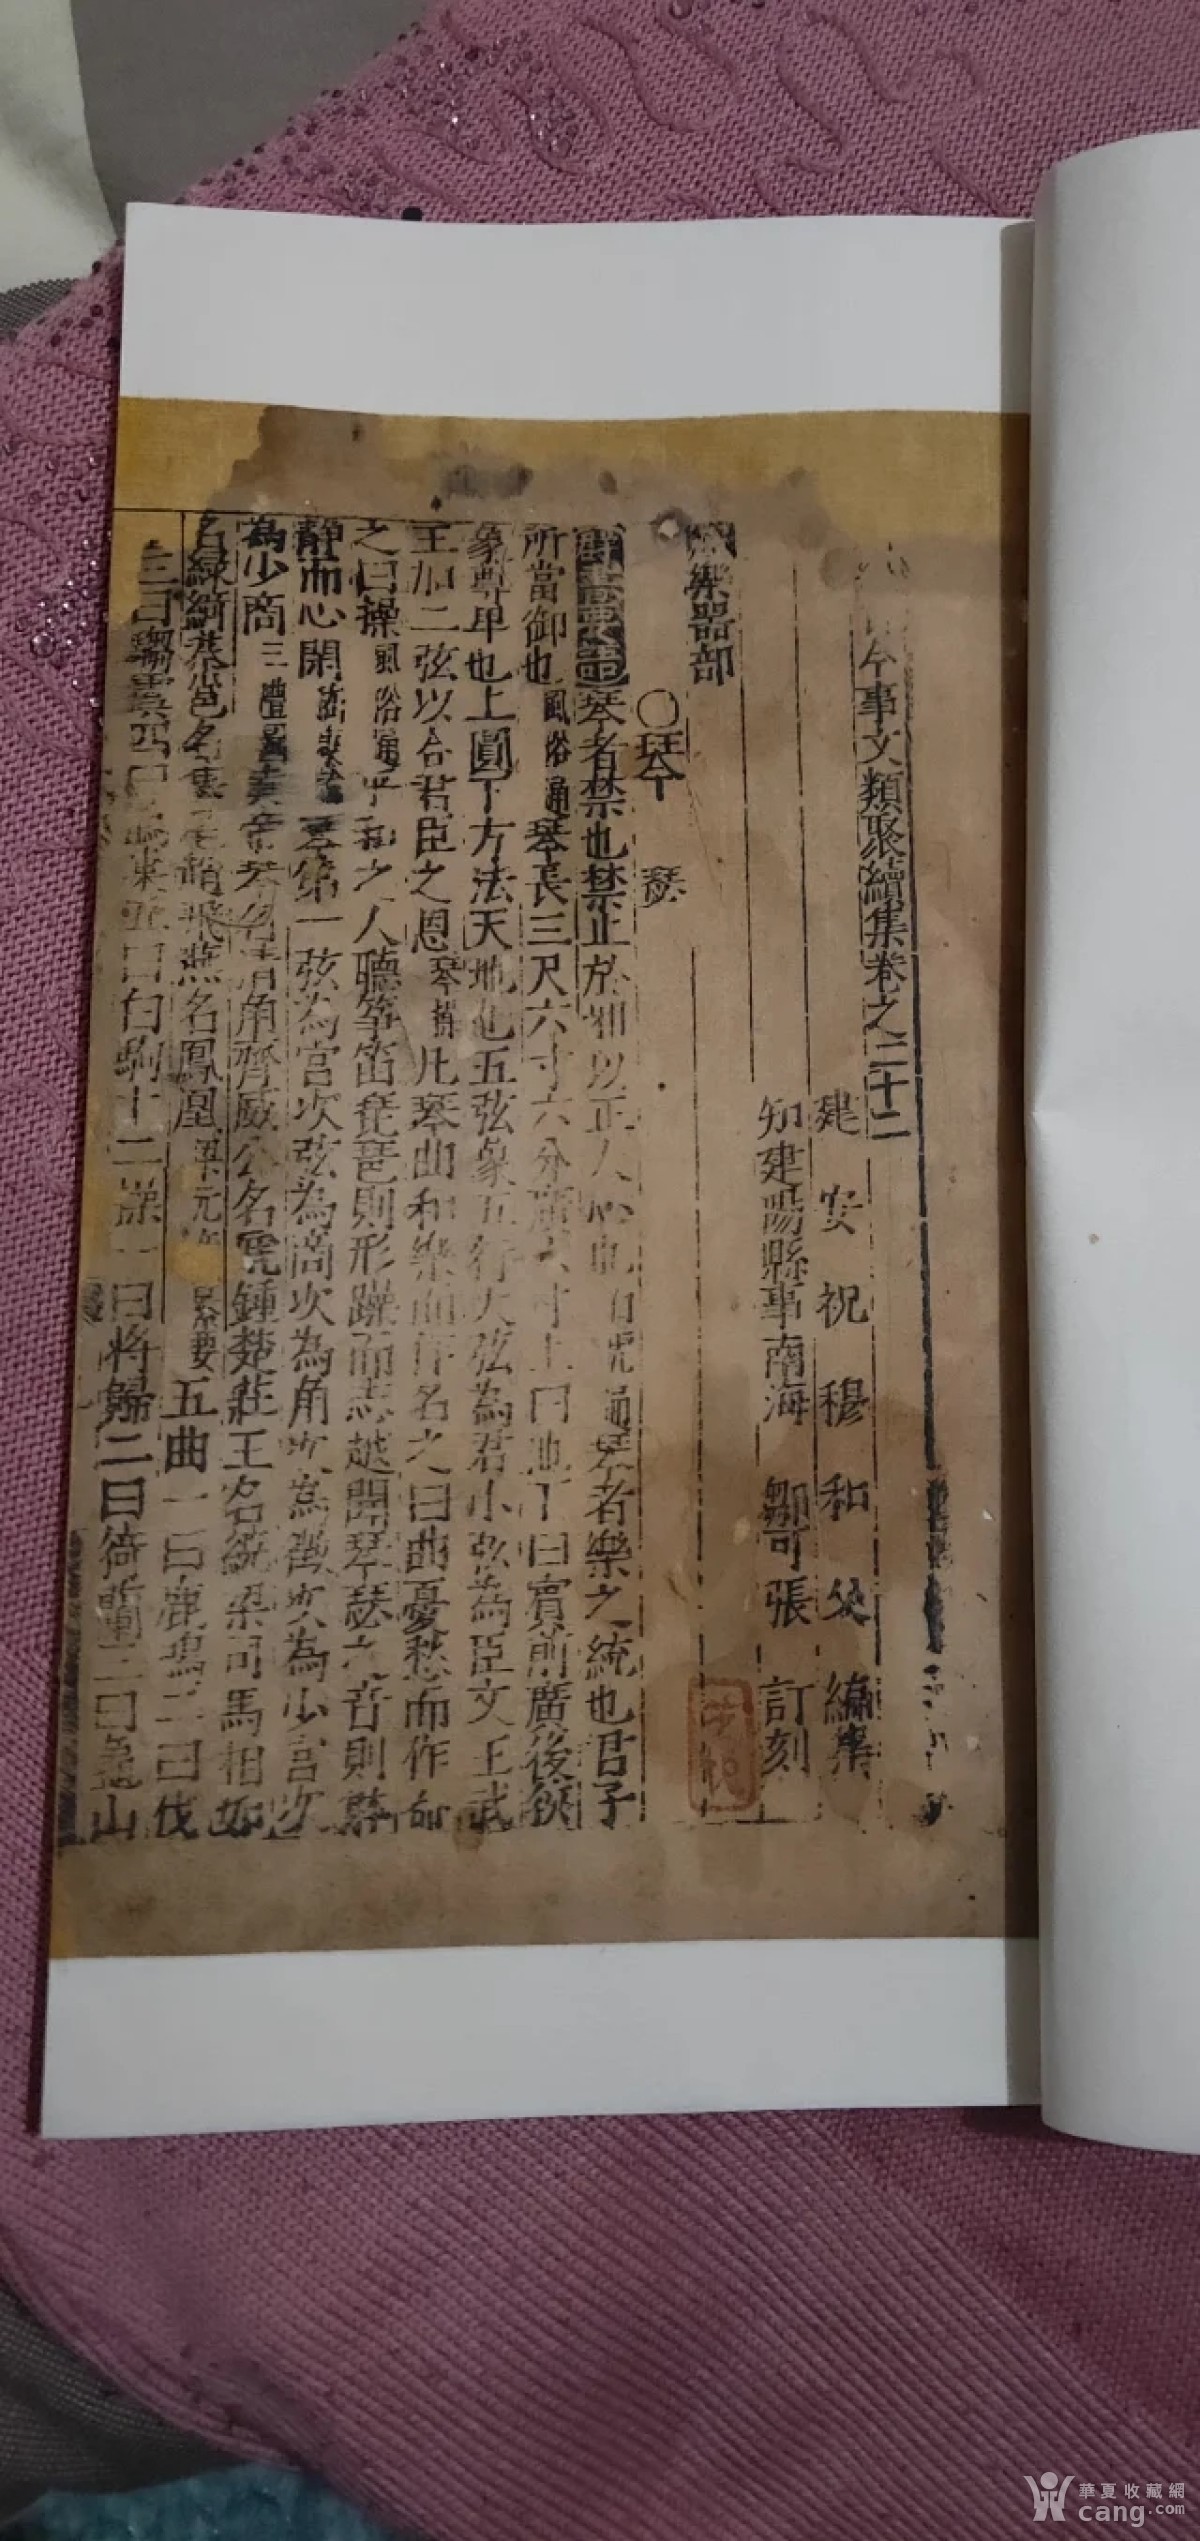 今事文類聚續集卷之二十二
建安祝穆和父編集
知建陽縣事南海鄒可張訂刻
樂器部
○琴 瑟
琴者禁也禁止於邪以正人心也 通琴者樂之統也君子
所當御也風俗通琴長三尺六寸六分 寸上曰池下曰賓前廣後狹
象尊卑也上圓下方法天地也五弦象五行大弦為君小弦為臣文王武
王加二弦以合君臣之恩琴操凡琴曲和樂而作名之曰曲憂愁而作命
之曰操風俗通平和之人聽箏笛琵琶則形躁而志越聞琴瑟之音則聽
靜而心閑 琴第一弦為宮次弦為商次為角次為徵次為少宮次
為少商三禮圖黃帝琴名清角齊威公名號鍾楚莊王名繞梁司馬相如
名綠綺蔡邕名 趙飛燕名鳳凰梁元 纂要五曲一曰鹿鳴二曰伐
三曰騶虞四曰 五曰白駒十二操一曰將歸二曰猗蘭三曰龜山
華夏收藏網
cang.com